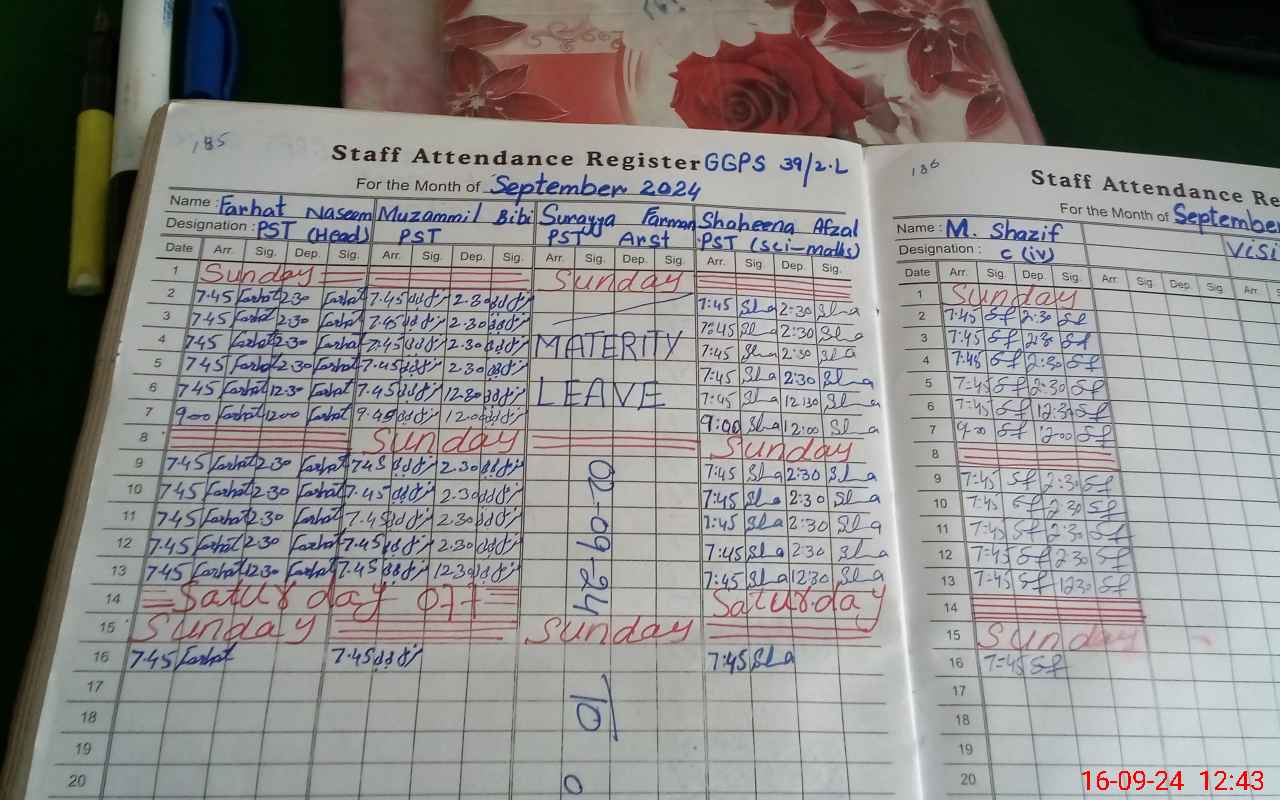 185
Staff Attendance Register GGPS 39/2.L
For the Month of September 2024
Name : Farhat Naseem Muzammil Bibi Surayya Farman Shaheena Afzal
Designation : PST (Head) PST PST Arst PST (Sci-maths)
Date Arr. Sig. Dep. Sig. Arr. Sig. Dep. Sig. Arr. Sig. Dep. Sig. Arr. Sig. Dep. Sig.
1 Sunday Sunday
2 7.45 Farhat 2.30 Farhat 7.45 2.30 7:45 Sha 2:30 Sha
3 7.45 Farhat 2.30 Farhat 7.45 2.30 7:45 Sha 2:30 Sha
4 7.45 Farhat 2.30 Farhat 7.45 2.30 MATERITY 7:45 Sha 2:30 Sha
5 7.45 Farhat 2.30 Farhat 7.45 2.30 7:45 Sha 2:30 Sha
6 7.45 Farhat 12.30 Farhat 7.45 12.30 LEAVE 7:45 Sha 12:30 Sha
7 9.00 Farhat 12.00 Farhat 12.00 9:00 Sha 12:00 Sha
8 Sunday Sunday
9 7.45 Farhat 2.30 Farhat 7.45 2.30 7:45 Sha 2:30 Sha
10 7.45 Farhat 2.30 Farhat 7.45 2.30 7:45 Sha 2:30 Sha
11 7.45 Farhat 2.30 Farhat 7.45 2.30 7:45 Sha 2:30 Sha
12 7.45 Farhat 2.30 Farhat 7.45 2.30 7:45 Sha 2:30 Sha
13 7.45 Farhat 12.30 Farhat 7.45 12.30 7:45 Sha 12:30 Sha
02-09-24
14 Saturday OFF Saturday
15 Sunday Sunday
16 7.45 Farhat 7.45 7:45 Sha
17
18 TO
19
20
186
Staff Attendance Re
For the Month of September
Name : M. Shazif
Designation : C (iv) Visi
Date Arr. Sig. Dep. Sig. Arr. Sig. Dep. Sig. Arr. S
1 Sunday
2 7:45 Sf 2:30 Sf
3 7:45 Sf 2:30 Sf
4 7:45 Sf 2:30 Sf
5 7:45 Sf 2:30 Sf
6 7:45 Sf 12:30 Sf
7 9:00 Sf 12:00 Sf
8
9 7:45 Sf 2:30 Sf
10 7:45 Sf 2:30 Sf
11 7:45 Sf 2:30 Sf
12 7:45 Sf 2:30 Sf
13 7:45 Sf 12:30 Sf
14
15 Sunday
16 7:45 Sf
17
18
19
20
16-09-24 12:43